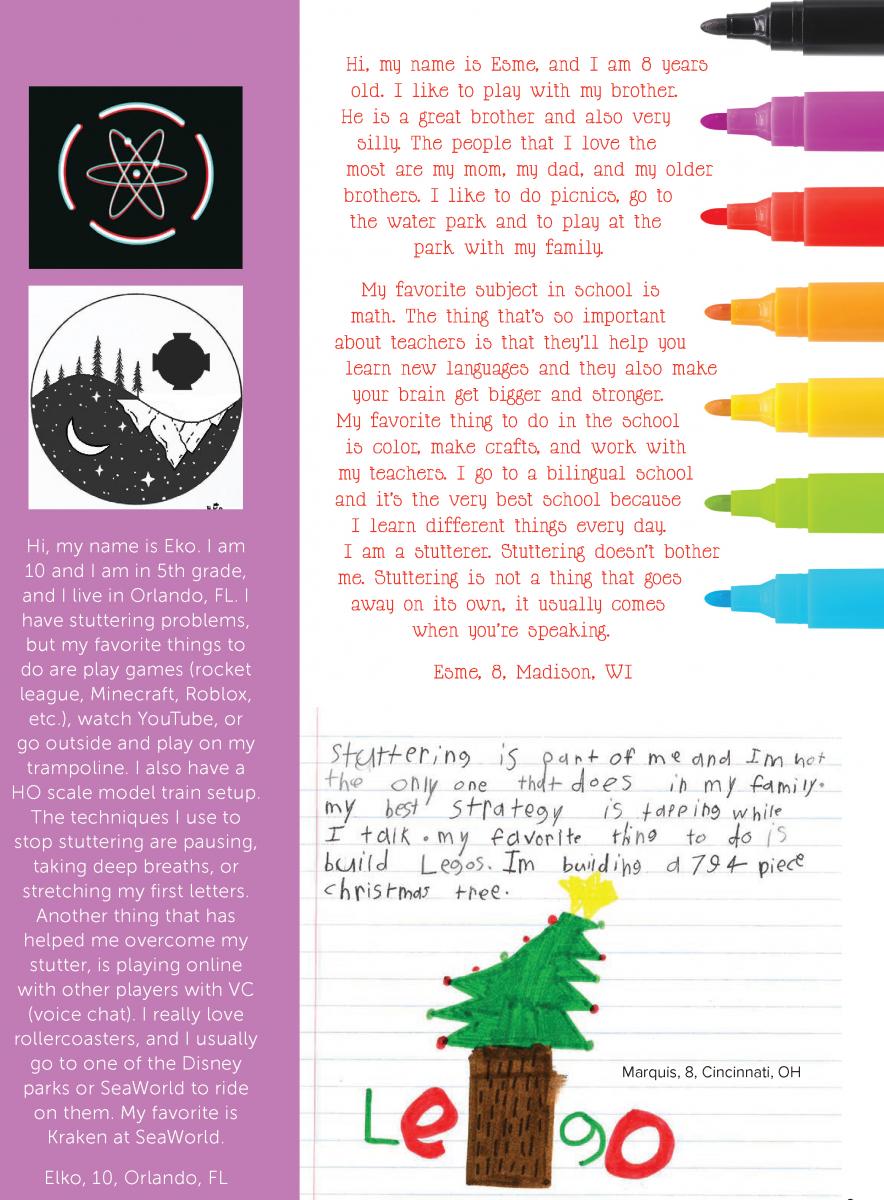 Hi, my name is Eko. I am
10 and I am in 5th grade,
and I live in Orlando, FL. I
have stuttering problems,
but my favorite things to
do are play games (rocket
league, Minecraft, Roblox,
etc.), watch YouTube, or
go outside and play on my
trampoline. I also have a
HO scale model train setup.
The techniques I use to
stop stuttering are pausing,
taking deep breaths, or
stretching my first letters.
Another thing that has
helped me overcome my
stutter, is playing online
with other players with VC
(voice chat). I really love
rollercoasters, and I usually
go to one of the Disney
parks or SeaWorld to ride
on them. My favorite is
Kraken at SeaWorld.
Elko, 10, Orlando, FL
Hi, my name is Esme, and I am 8 years
old. I like to play with my brother.
He is a great brother and also very
silly. The people that I love the
most are my mom, my dad, and my older
brothers. I like to do picnics, go to
the water park and to play at the
park with my family.
My favorite subject in school is
math. The thing that's so important
about teachers is that they'll help you
learn new languages and they also make
your brain get bigger and stronger.
My favorite thing to do in the school
is color, make crafts, and work with
my teachers. I go to a bilingual school
and it's the very best school because
I learn different things every day.
I am a stutterer. Stuttering doesn't bother
me. Stuttering is not a thing that goes
away on its own, it usually comes
when you're speaking.
Esme, 8, Madison, WI
Stuttering is part of me and Im not
the only one that does in my family.
my best strategy is tapping while
I talk. my favorite thing to do is
build Legos. Im building a 794 piece
christmas tree.
Marquis, 8, Cincinnati, OH
Lego